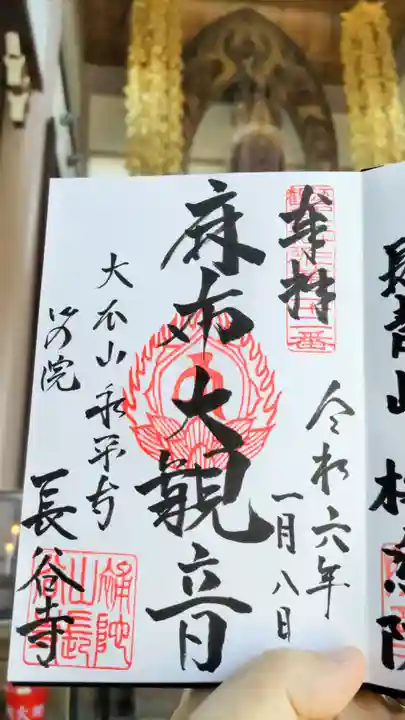 長青山 梅窓院
奉拝
令和六年
一月八日
麻布大観音
大本山永平寺
別院
長谷寺